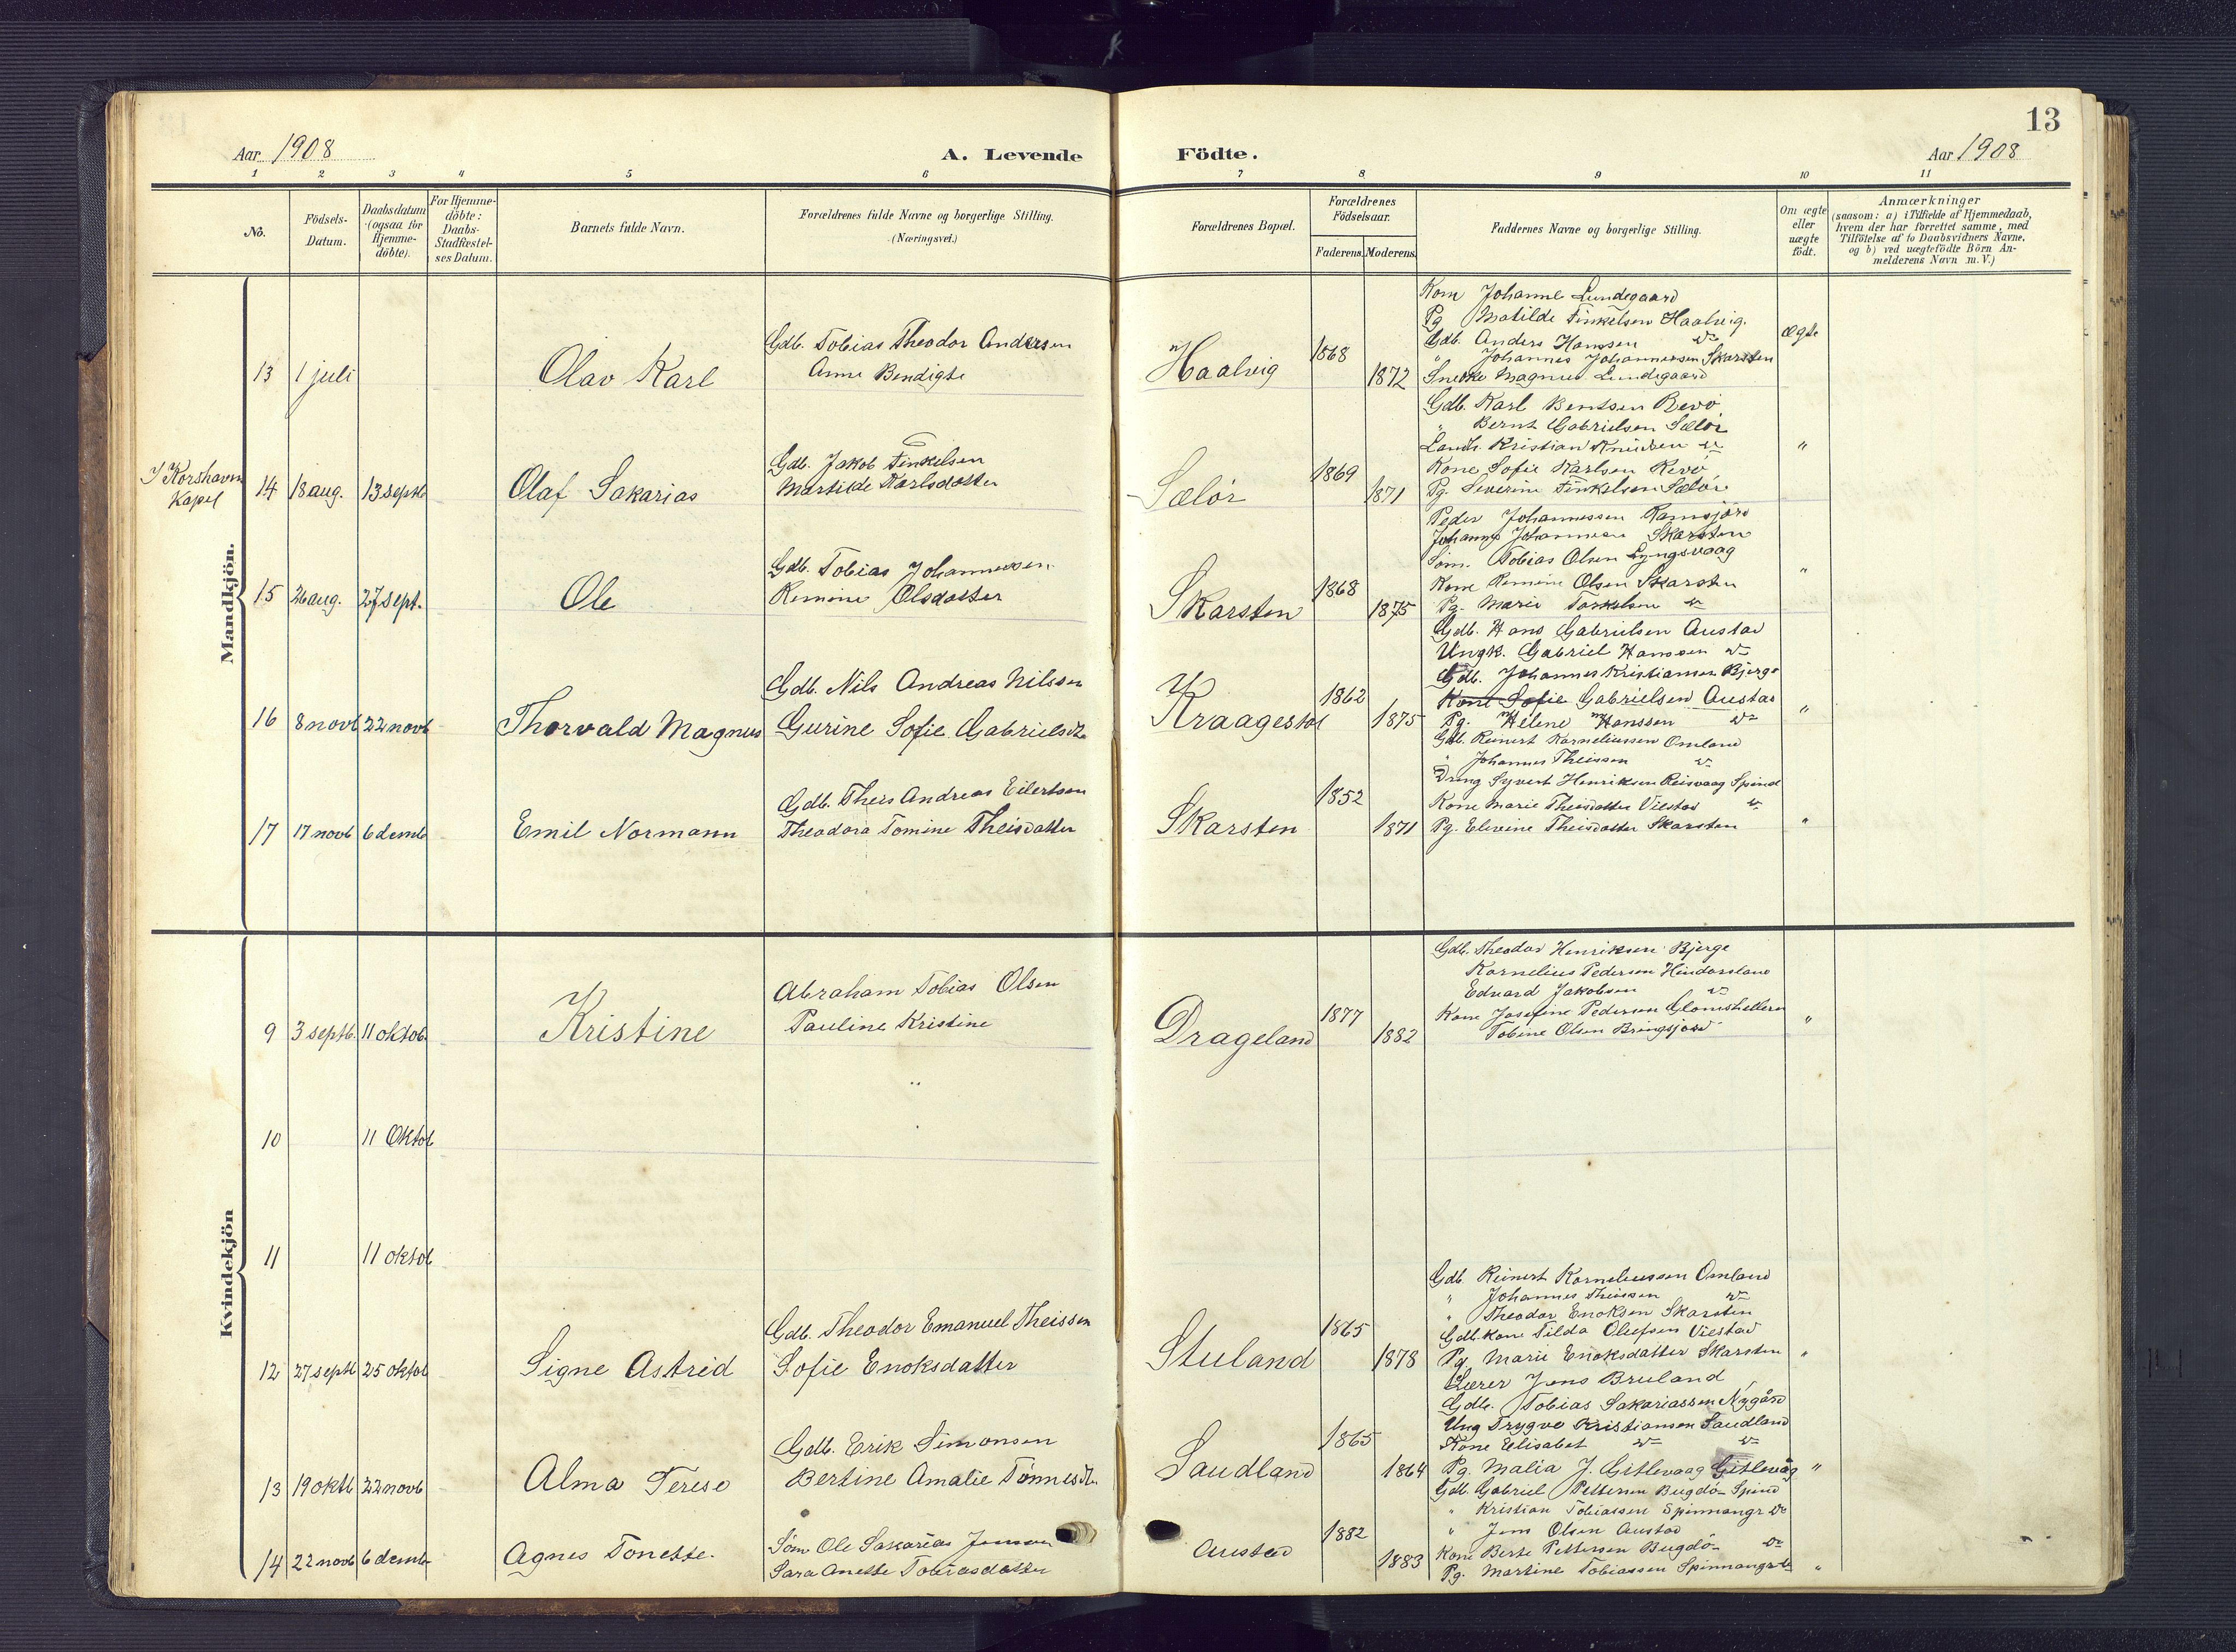 13
Aar 1908
A. Levende
Födte.
Aar 1908
1 2 3 4 5 6 7 8 9 10 11
No.
Födsels-
Datum.
Daabsdatum
(ogsaa for
Hjemme-
döbte).
For Hjemme-
döbte:
Daabs-
Stadfæstel-
ses Datum.
Barnets fulde Navn.
Forældrenes fulde Navne og borgerlige Stilling.
(Næringsvei.)
Forældrenes Bopæl.
Forældrenes
Födselsaar.
Faderens. Moderens.
Faddernes Navne og borgerlige Stilling.
Om ægte
eller
uægte
födt.
Anmærkninger
(saasom: a) i Tilfælde af Hjemmedaab,
hvem der har forrettet samme, med
Tilföielse af to Daabsvidners Navne,
og b) ved uægtefödte Börn An-
melderens Navn m. V.)
Mandkjön.
13 1 juli
Olav Karl
Gdb. Tobias Theodor Andersen
Anne Bendigte
Haalvig
1868
1872
Kone Johanne Lundegaard
Pg Matilde Finkelsen Haalvig.
Gdb. Anders Hanssen do
" Johannes Johannessen Skarsten
Snedke Magnus Lundegaard
ægte
I Korshavn
Kapel
14 18 aug. 13 septb
Olaf Sakarias
Gdb. Jakob Finkelsen
Martilde Karlsdatter
Sælör
1869
1871
Gdb. Karl Bentsen Revö
" Bernt Gabrielsen Sælör
Landh. Kristian Knudsen do
Kone Sofie Karlsen Revö
Pg. Severine Finkelsen Sælör
"
15 26 aug. 27 sept.
Ole
Gdb. Tobias Johannessen
Remine Olsdatter
Skarsten
1868
1875
Peder Johannessen Ramsjord
Johannes Johannesen Skarsten
Söm. Tobias Olsen Lyngsvaag
Kone Remine Olsen Skarsten
Pg. Marie Torkelsen do
"
16 8 novb 22 novb
Thorvald Magnus
Gdb. Nils Andreas Nilsen
Gurine Sofie Gabrielsdtr
Kraagestol
1862
1875
Gdb. Hans Gabrielsen Austad
Ungk. Gabriel Hanssen do
Gdb. Johannes Kristiansen Bjerge
Kone Sofie Gabrielsen Austad
Pg. Helene Hanssen do
"
17 17 novb 6 decmb
Emil Normann
Gdb. Theis Andreas Eilertsen
Theodora Tomine Theisdatter
Skarsten
1852
1871
Gdb. Reinert Korneliussen Omland
" Johannes Theissen do
Dreng Syvert Henriksen Reisvaag Spind
Kone Marie Theisdatter Viestad do
Pg. Elevine Theisdatter Skarsten
"
Kvindekjön
9 3 septb. 11 oktob.
Kristine
Abraham Tobias Olsen
Pauline Kristine
Drageland
1877
1882
Gdb. Theodor Henriksen Bjerge
Kornelius Pedersen Hindarsland
Edvard Jakobsen do
Kone Josefine Pedersen Glomshelleren
Tobine Olsen Bringsjord
"
10 11 Oktob
11 11 oktob
12 27 septb 25 oktob
Signe Astrid
Gdb. Theodor Emanuel Theissen
Sofie Enoksdatter
Stuland
1865
1878
Gdb Reinert Korneliussen Omland
" Johannes Theissen do
" Theodor Enoksen Skarsten
Gdb.kone Tilda Olufsen Viestad
Pg. Marie Enoksdatter Skarsten
"
13 19 oktb 22 novb
Alma Terese
Gdb. Erik Simonsen
Bertine Amalie Tönnesdtr.
Saudland
1865
1864
Lærer Jens Bruland
Gdb. Tobias Sakariassen Nygård
Ung Trygve Kristiansen Saudland
Kone Elisabet do do
Pg. Malia J. Gitlevaag Gitlevåg
"
14 22 novb 6 decmb
Agnes Tonette.
Söm Ole Sakarias Jensen
Sara Anette Tobiasdatter
Austad
1882
1883
Gdb. Gabriel Pettersen Bugdö Spind
" Kristian Tobiassen Spinnangr do
" Jens Olsen Austad
Kone Berte Pettersen Bugdö do
Pg. Martine Tobiassen Spinnangr do
"